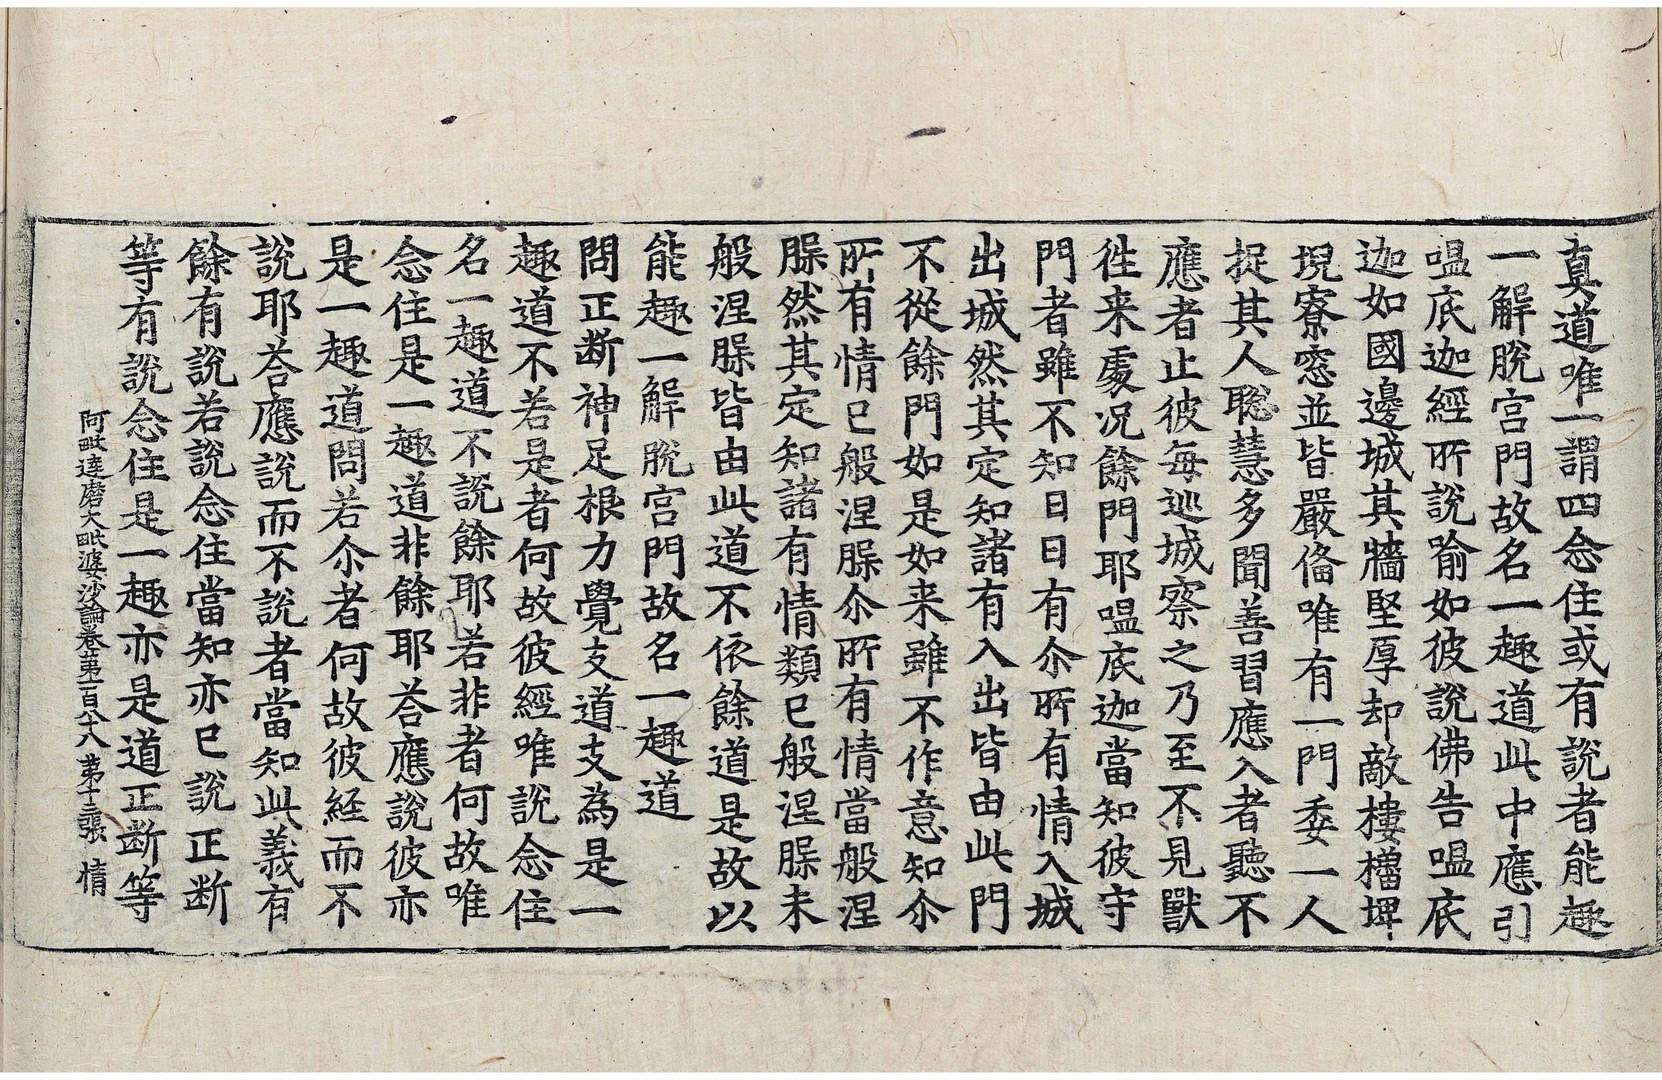 真道唯一謂四念住或有說者能趣
一解脫宮門故名一趣道此中應引
嗢底迦經所說喻如彼說佛告嗢底
迦如國邊城其牆堅厚却敵樓櫓埤
堄寮窓並皆嚴俻唯有一門委一人
捉其人聡慧多聞善習應入者聽不
應者止彼每巡城察之乃至不見獸
徃来處况餘門耶嗢底迦當知彼守
門者雖不知日日有尒所有情入城
出城然其定知諸有入出皆由此門
不從餘門如是如来雖不作意知尒
所有情已般涅腺尒所有情當般涅
腺然其定知諸有情類已般涅腺未
般涅腺皆由此道不依餘道是故以
能趣一解脫宮門故名一趣道
問正断神足根力覺支道支為是一
趣道不若是者何故彼經唯說念住
名一趣道不說餘耶若非者何故唯
念住是一趣道非餘耶荅應說彼亦
是一趣道問若尒者何故彼経而不
說耶荅應說而不說者當知此義有
餘有說若說念住當知亦已說正断
等有說念住是一趣亦是道正断等
阿毗達磨大毗婆沙論卷苐一百八十八 苐十三張 情